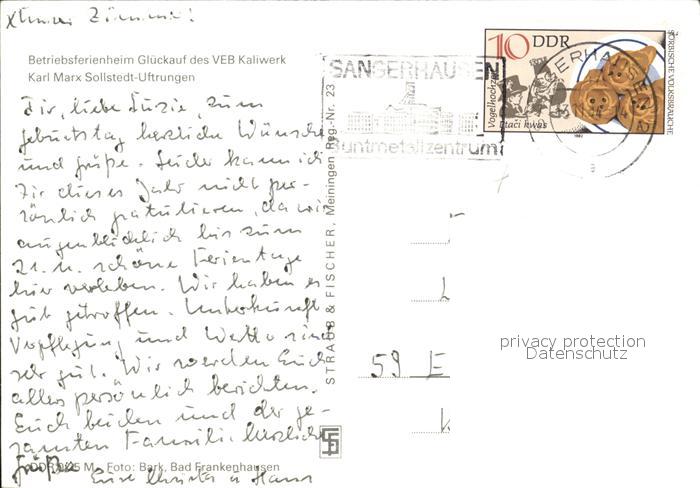 x Unser Zimmer!
Betriebsferienheim Glückauf des VEB Kaliwerk
Karl Marx Sollstedt-Uftrungen
Dir, liebe Luzie, zum
Geburtstag herzliche Wünsche
und Grüße. Leider kann ich
Dir dieses Jahr nicht per-
sönlich gratulieren, da wir
augenblicklich bis zum
21. 11. schöne Ferientage
hier verleben. Wir haben es
gut getroffen. Unterkunft
Verpflegung und Wetter sind
sehr gut. Wir werden Euch
alles persönlich berichten.
Euch beiden und der ge-
samten Familie herzliche
Grüße Eure Christa u Hans
DDR M Foto: Bark, Bad Frankenhausen
STRAUB & FISCHER, Meiningen Reg.-Nr. 23
SANGERHAUSEN
Buntmetallzentrum
10 DDR
Vogelhochzeit
Ptači kwas
SORBISCHE VOLKSBRÄUCHE
1982
59 E
privacy protection
Datenschutz